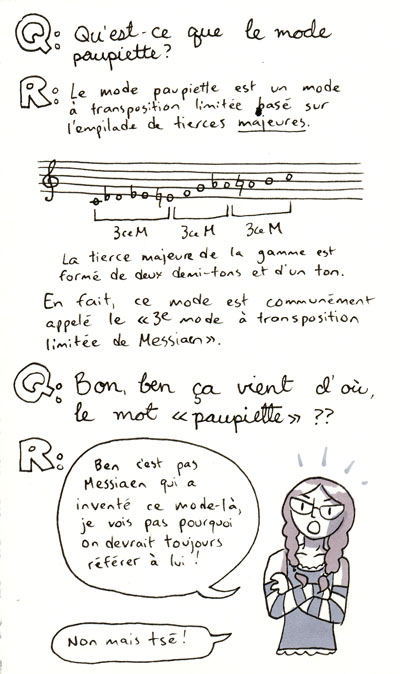 Q: Qu'est-ce que le mode
paupiette?
R: Le mode paupiette est un mode
à transposition limitée basé sur
l'empilade de tierces majeures.
3ce M 3ce M 3ce M
La tierce majeure de la gamme est
formé de deux demi-tons et d'un ton.
En fait, ce mode est communément
appelé le «3e mode à transposition
limitée de Messiaen».
Q: Bon, ben ça vient d'où,
le mot «paupiette» ??
R:
Ben c'est pas
Messiaen qui a
inventé ce mode-là,
je vois pas pourquoi
on devrait toujours
référer à lui!
Non mais tsé!